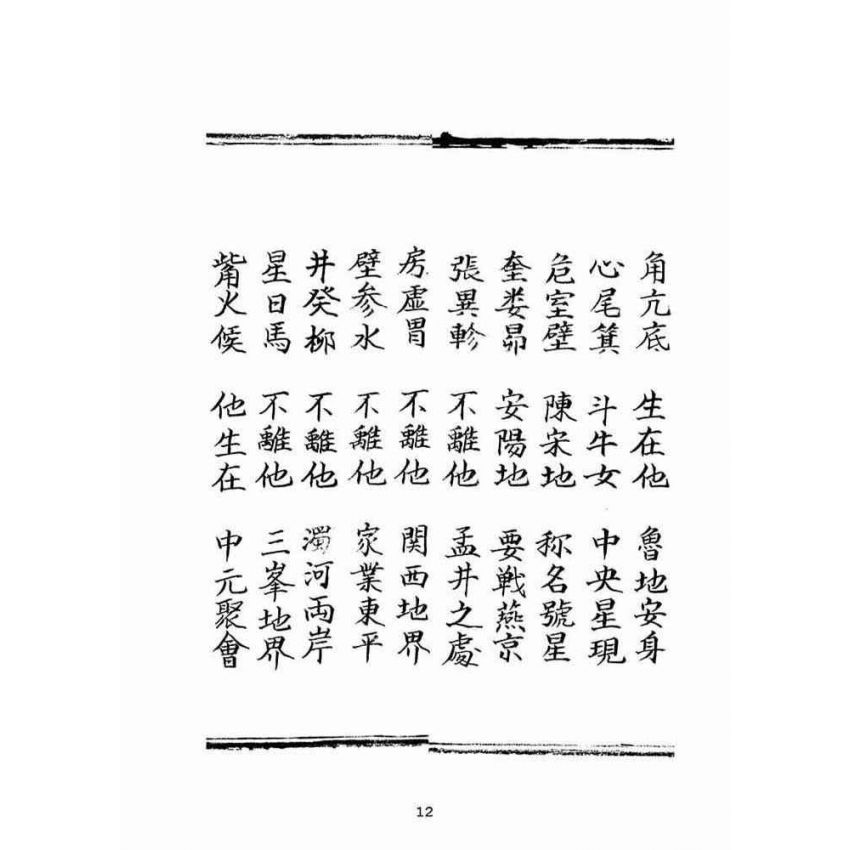 角亢底 生在他 魯地安身
心尾箕 斗牛女 中央星現
危室壁 陳宋地 称名號星
奎娄昴 安陽地 要戦燕京
張異軫 不離他 孟井之處
房虛胃 不離他 関西地界
壁参水 不離他 家業東平
井癸柳 不離他 濁河両岸
星日馬 不離他 三峯地界
觜火候 他生在 中元聚會
12